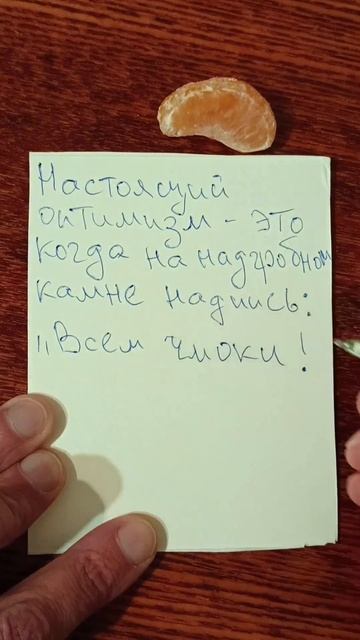 Настоящий
оптимизм - это
когда на надгробном
камне надпись:
„Всем чмоки!